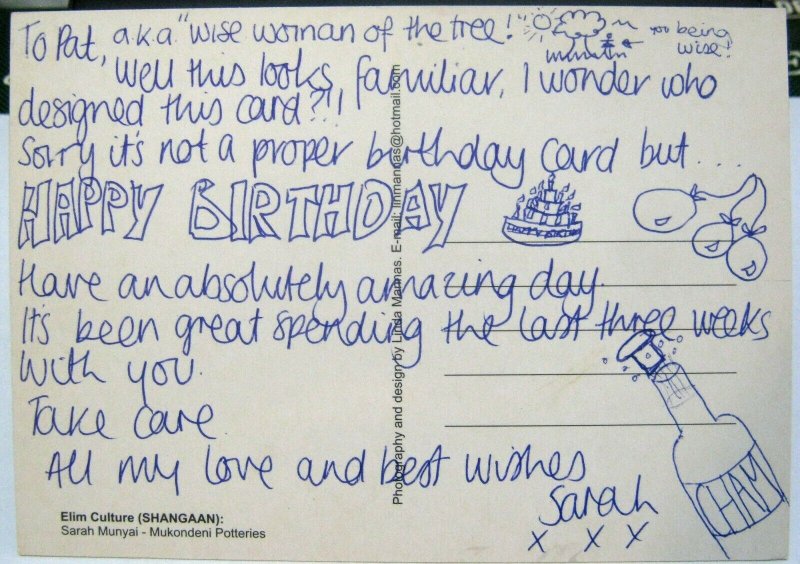 To Pat, a.k.a "wise woman of the tree!"
too being
wise!
Well this looks familiar, I wonder who
designed this card?!!
Sorry it's not a proper birthday card but ...
HAPPY BIRTHDAY
HAPPY BIRTHDAY
Have an absolutely amazing day.
It's been great spending the last three weeks
with you.
Take care.
All my love and best wishes
Sarah
x x x
CHAM
Elim Culture (SHANGAAN):
Sarah Munyai - Mukondeni Potteries
Photography and design by Linda Mannas. E-mail: linmannas@hotmail.com